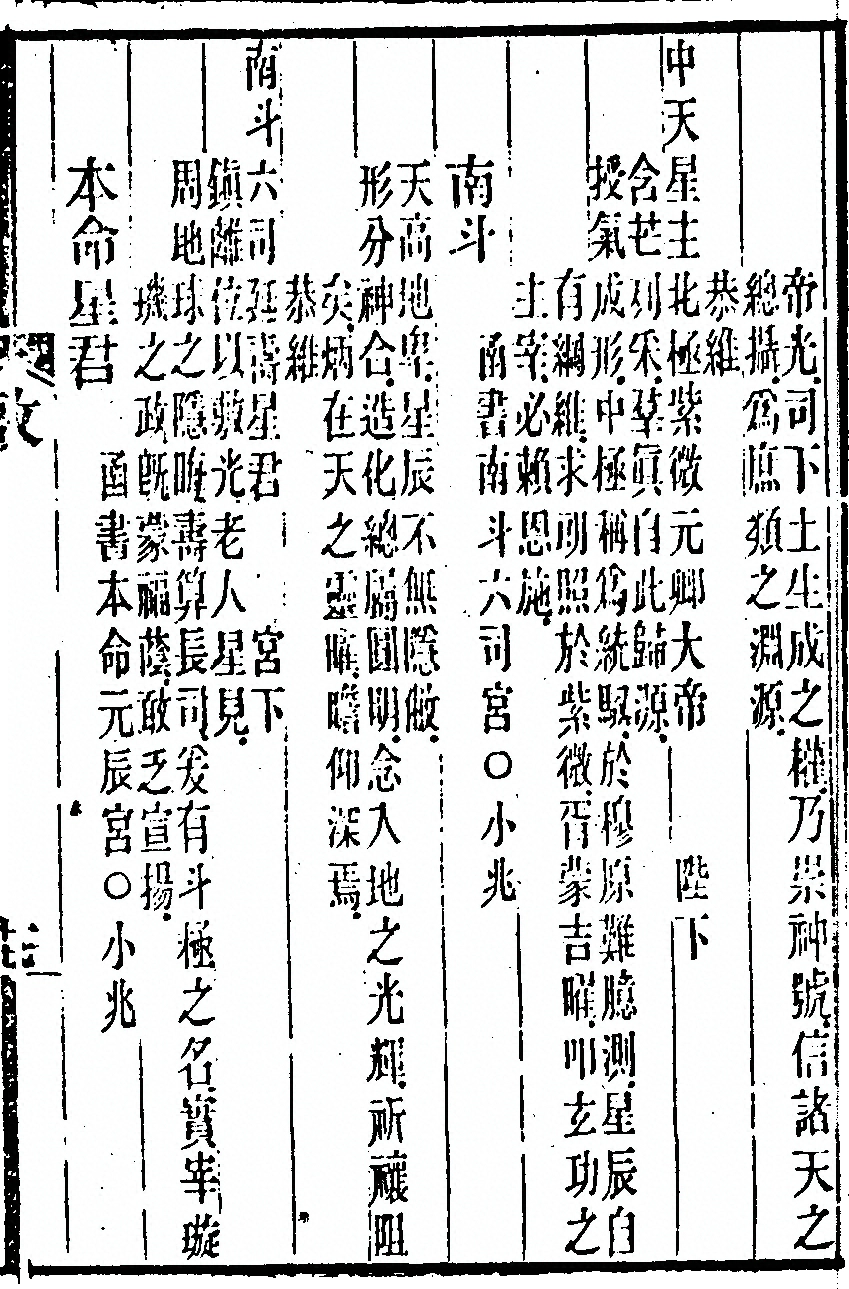 帝光司下土生成之權乃崇神號信諸天之
總攝為庶類之淵源
恭維
中天星主北極紫微元卿大帝 陛下
含芒列釆羣真自此歸源
授氣成形中極稱為統馭於穆原難臆測星辰自
有綱維求所照於紫微胥蒙吉曜叩玄功之
主宰必賴恩施
南斗 函書南斗六司宮○小兆
天高地卑星辰不無隱
形分神合造化總屬圓明念入地之光輝祈禳阻
矣炳在天之靈曜瞻仰深焉
恭維
南斗六司延壽星君 宮下
鎮離位以敷光老人星見
周地球之隱曜壽算長司爰有斗極之名實宰璇
璣之政既蒙福蔭敢乏宣揚
本命星君 函書本命元辰宮○小兆